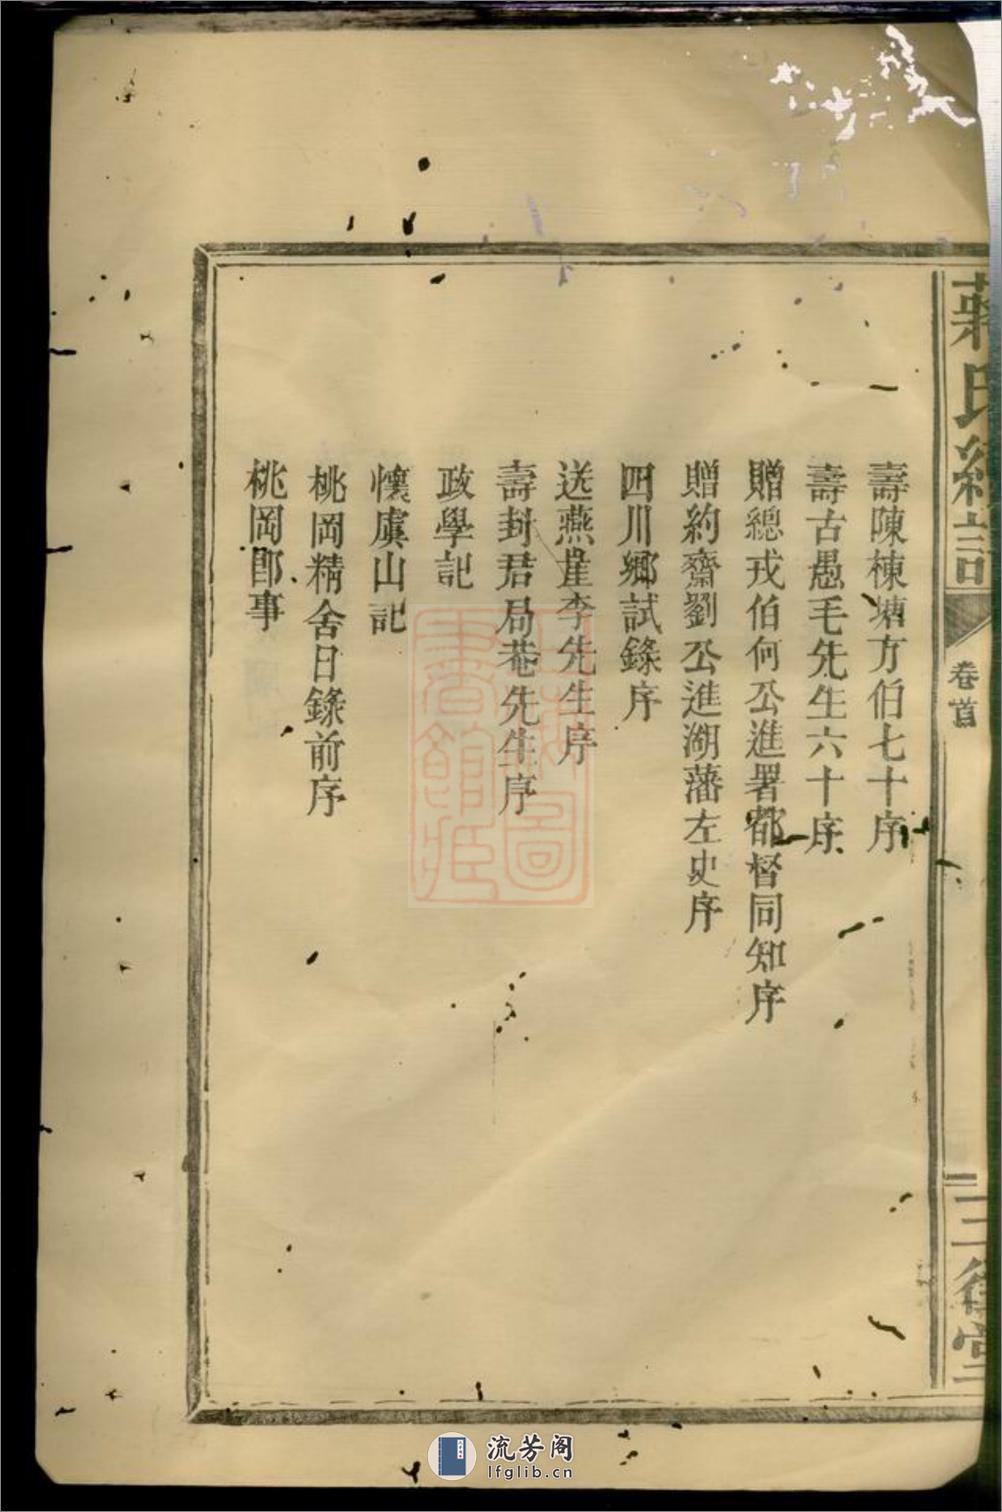 蔣氏續譜
卷首
二
三徑堂
壽陳棟塘方伯七十序
壽古愚毛先生六十序
贈總戎伯何公進署都督同知序
贈約齋劉公進湖藩左史序
四川鄉試錄序
送燕崖李先生序
壽封君局菴先生序
政學記
懷虞山記
桃岡精舍日錄前序
桃岡卽事
流芳阁
lfglib.cn